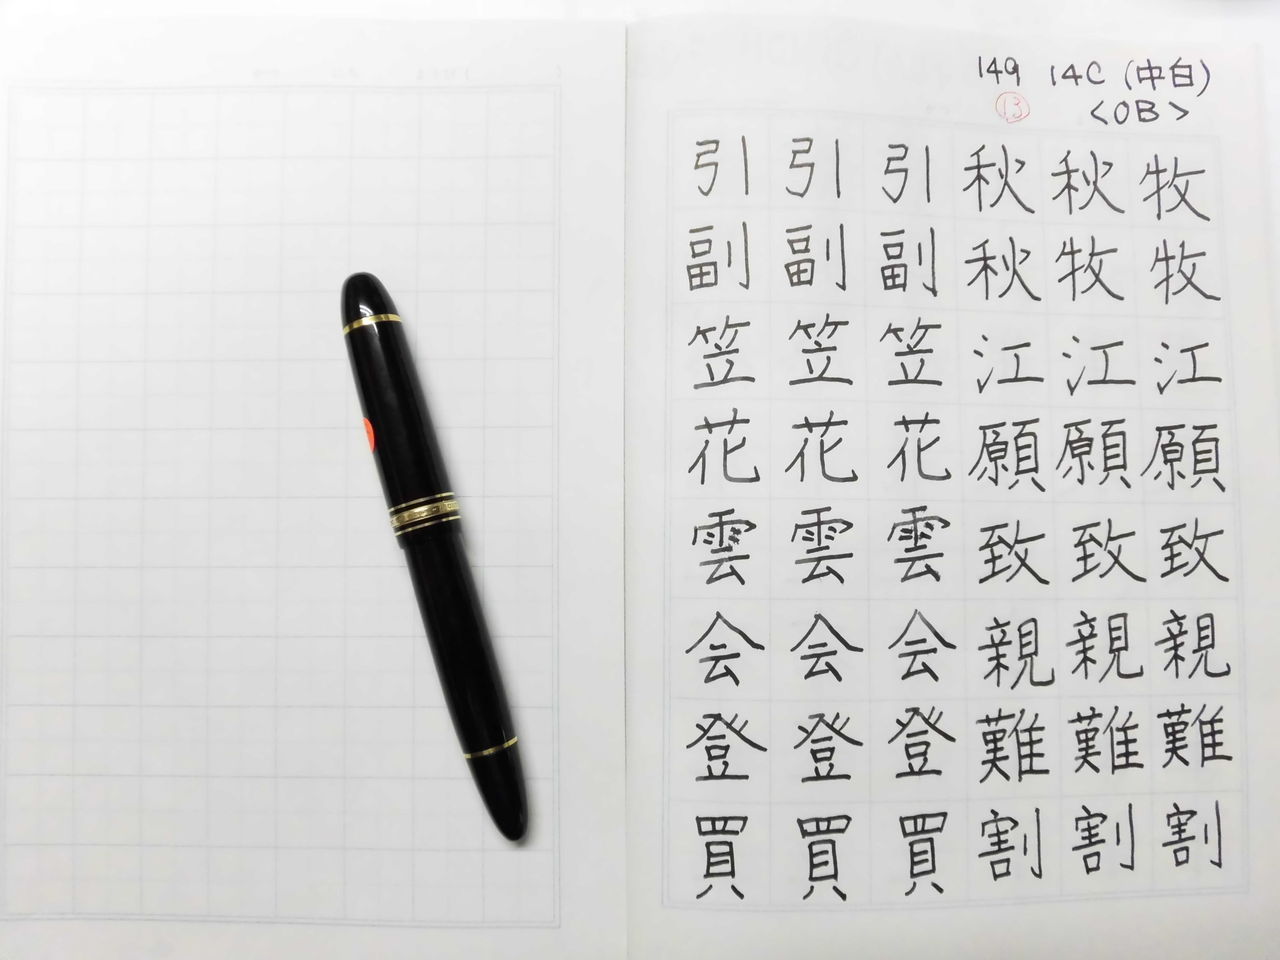 149 14C (中白)
13 <OB>
引引引秋秋牧
副副副秋牧牧
笠笠笠江江江
花花花願願願
雲雲雲致致致
会会会親親親
登登登難難難
買買買割割割